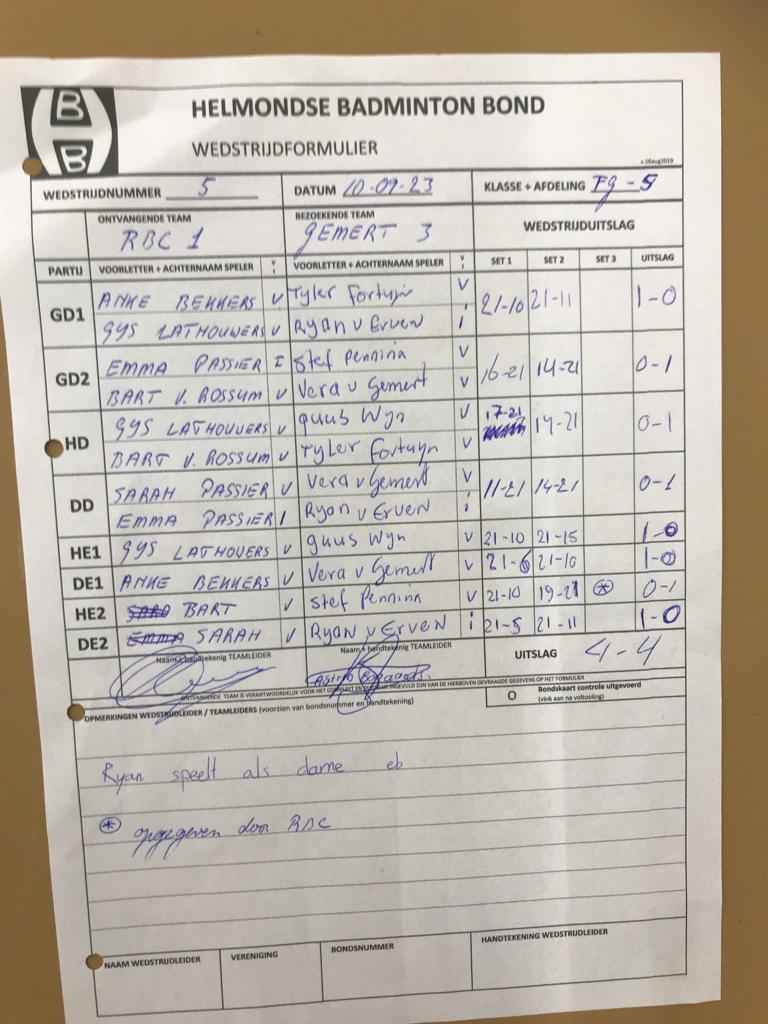 B
B
HELMONDSE BADMINTON BOND
WEDSTRIJDFORMULIER
v.26aug2019
WEDSTRIJDNUMMER 5 DATUM 10-09-23 KLASSE + AFDELING Fg-5
ONTVANGENDE TEAM BEZOEKENDE TEAM WEDSTRIJDUITSLAG
RBC 1 GEMERT 3
PARTIJ VOORLETTER + ACHTERNAAM SPELER V I VOORLETTER + ACHTERNAAM SPELER V I SET 1 SET 2 SET 3 UITSLAG
GD1 ANKE BEKKERS V Tyler Fortuyn V 21-10 21-11 1-0
GYS LATHOUWERS V Ryan v Erven i
GD2 EMMA PASSIER I Stef Pennina V 16-21 14-21 0-1
BART V. ROSSUM V Vera v Gemert V
HD GYS LATHOUVERS V guus Wyn V 17-21 14-21 0-1
BART V. ROSSUM V Tyler Fortuyn V
DD SARAH PASSIER V Vera v Gemert V 11-21 14-21 0-1
EMMA PASSIER I Ryan v Erven i
HE1 GYS LATHOVERS V guus Wyn V 21-10 21-15 1-0
DE1 ANKE BEKKERS V Vera v Gemert V 21-6 21-10 1-0
HE2 BART V Stef Pennina V 21-10 19-21 * 0-1
DE2 EMMA SARAH V Ryan v Erven i 21-5 21-11 1-0
Naam + handtekenig TEAMLEIDER Naam + handtekenig TEAMLEIDER UITSLAG 4-4
ONTVANGENDE TEAM IS VERANTWOORDELIJK VOOR HET INGEVULD ZIJN VAN DE HIERBOVEN GEVRAAGDE GEGEVENS OP HET FORMULIER
O Bondskaart controle uitgevoerd
(vink aan na voltooiing)
OPMERKINGEN WEDSTRIJDLEIDER / TEAMLEIDERS (voorzien van bondsnummer en handtekening)
Ryan speelt als dame eb
* opgegeven door RBC
NAAM WEDSTRIJDLEIDER VERENIGING BONDSNUMMER HANDTEKENING WEDSTRIJDLEIDER